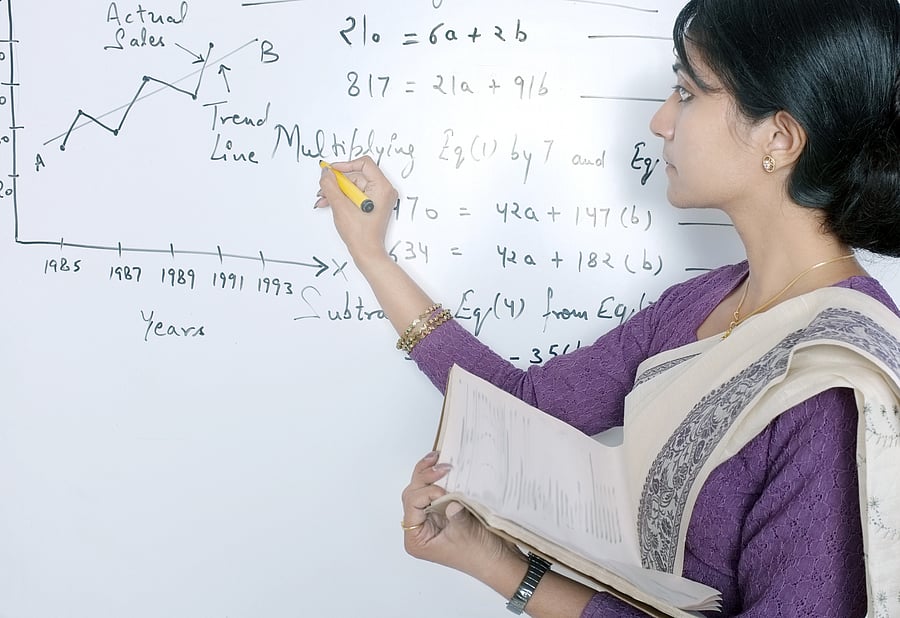 Actual
Sales
B
Trend
Line
A
20
1985 1987 1989 1991 1993
X
Years
210 = 6a + 21b
817 = 21a + 91b
Multiplying Eq(1) by 7 and Eq
470 = 42a + 147(b)
634 = 42a + 182(b)
Subtra Eq(4) from Eq(
- 35(b